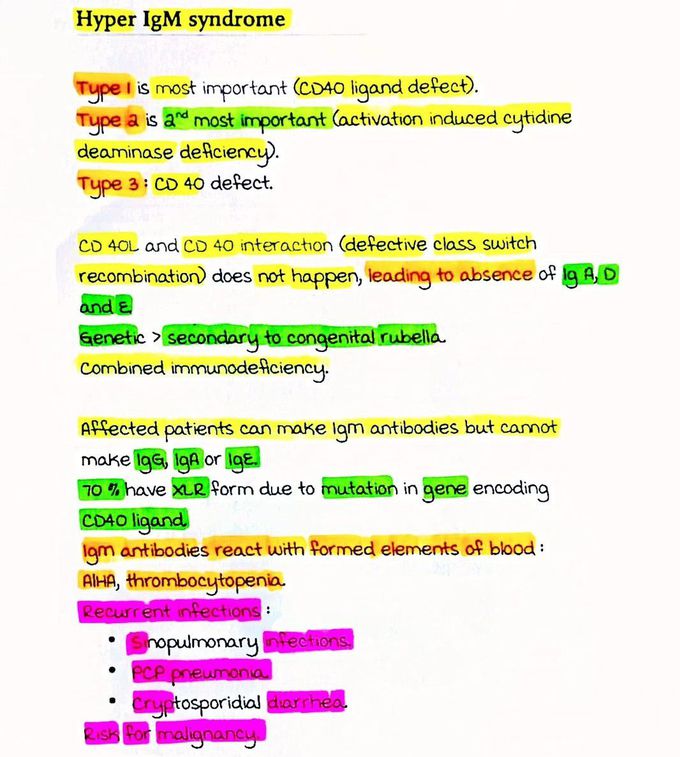 Hyper IgM syndrome
Type 1 is most important (CD40 ligand defect).
Type 2 is 2nd most important (activation induced cytidine
deaminase deficiency).
Type 3: CD 40 defect.
CD 40L and CD 40 interaction (defective class switch
recombination) does not happen, leading to absence of Ig A, D
and E
Genetic > secondary to congenital rubella.
Combined immunodeficiency.
Affected patients can make Igm antibodies but cannot
make IgG, IgA or IgE.
70 % have XLR form due to mutation in gene encoding
CD40 ligand.
Igm antibodies react with formed elements of blood:
AIHA, thrombocytopenia.
Recurrent infections:
• Sinopulmonary infections.
• PCP pneumonia.
• Cryptosporidial diarrhea.
Risk for malignancy.